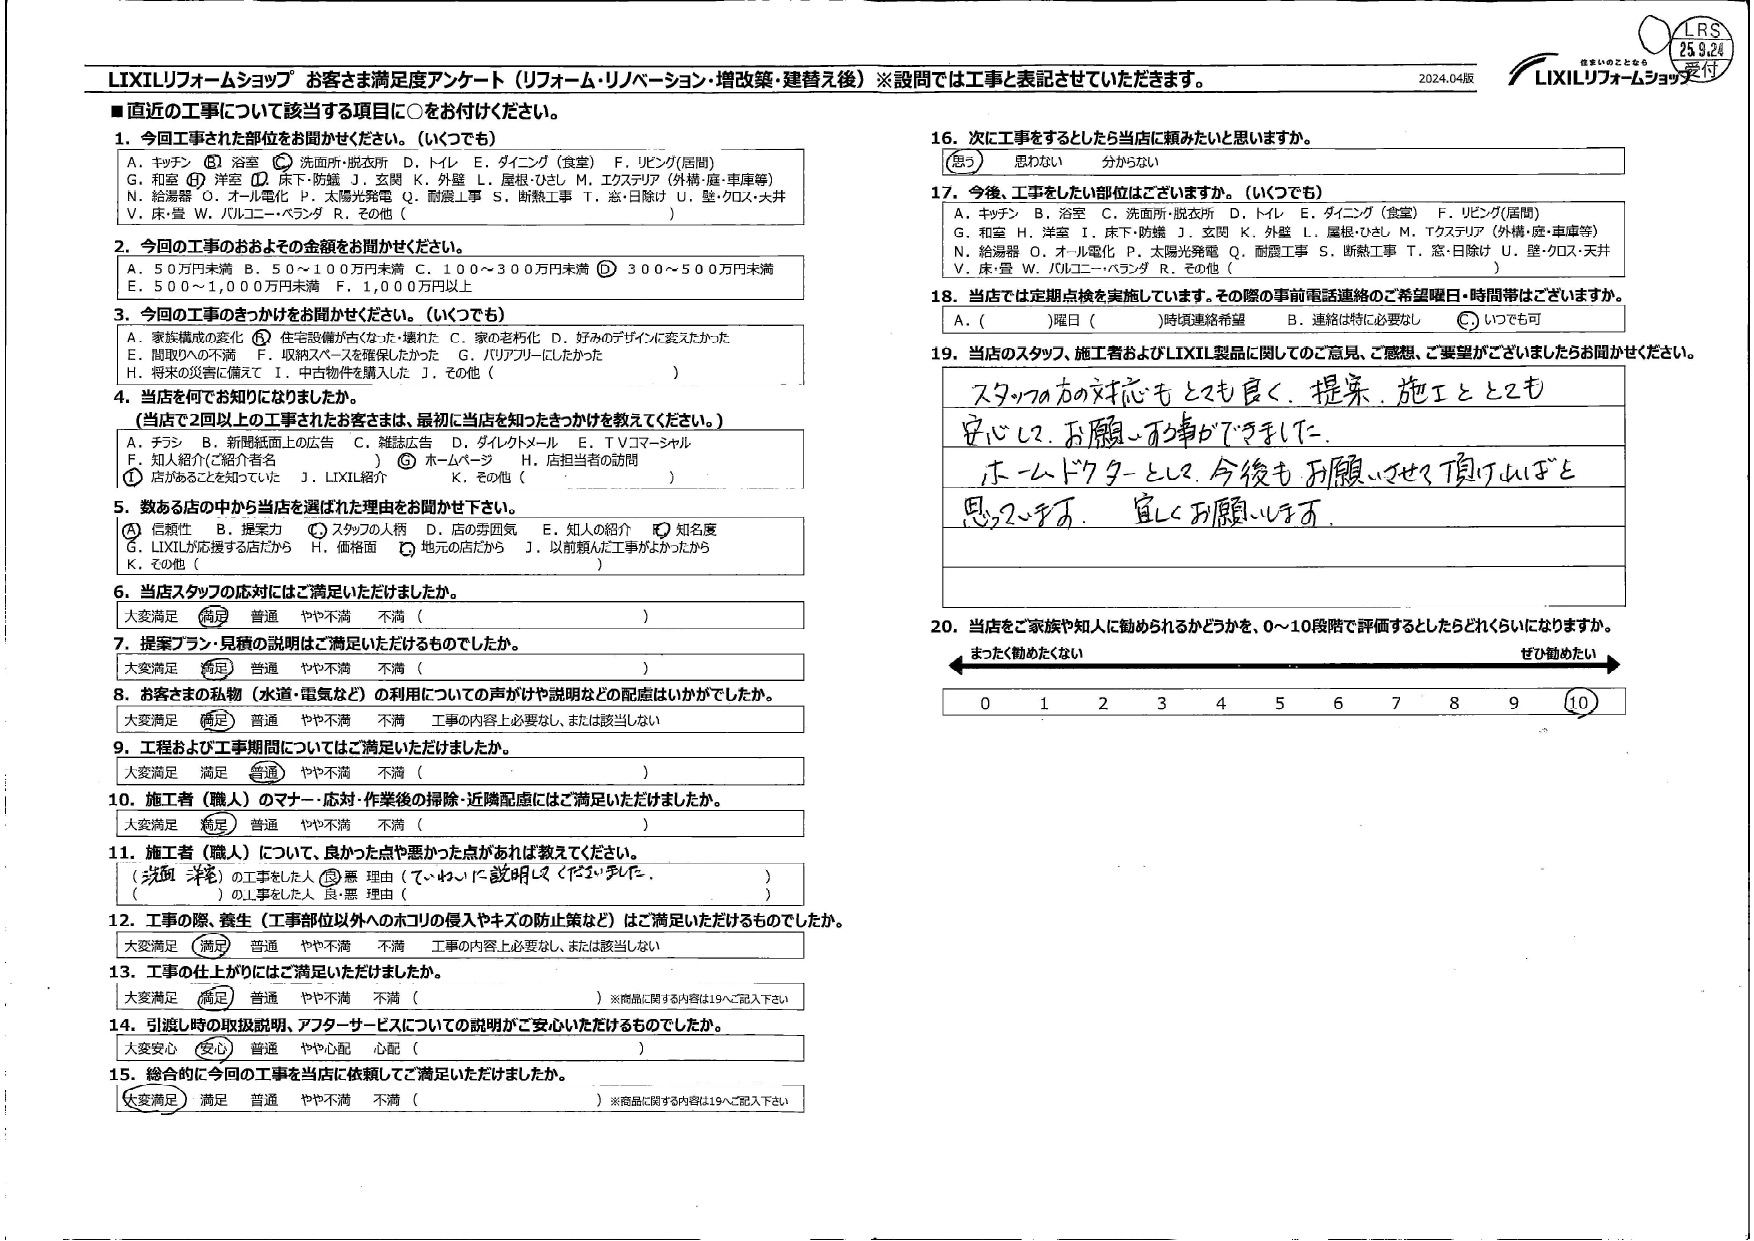 LRS
25.9.24
受付
住まいのことなら
LIXILリフォームショップ
LIXILリフォームショップ お客さま満足度アンケート（リフォーム・リノベーション・増改築・建替え後）※設問では工事と表記させていただきます。
2024.04版
■直近の工事について該当する項目に○をお付けください。
1．今回工事された部位をお聞かせください。（いくつでも）
A．キッチン B 浴室 C 洗面所・脱衣所 D．トイレ E．ダイニング（食堂） F．リビング(居間)
G．和室 H 洋室 I 床下・防蟻 J．玄関 K．外壁 L．屋根・ひさし M．エクステリア（外構・庭・車庫等）
N．給湯器 O．オール電化 P．太陽光発電 Q．耐震工事 S．断熱工事 T．窓・日除け U．壁・クロス・天井
V．床・畳 W．バルコニー・ベランダ R．その他（ ）
2．今回の工事のおおよその金額をお聞かせください。
A．５０万円未満 B．５０～１００万円未満 C．１００～３００万円未満 D ３００～５００万円未満
E．５００～1,０００万円未満 F．1,０００万円以上
3．今回の工事のきっかけをお聞かせください。（いくつでも）
A．家族構成の変化 B 住宅設備が古くなった・壊れた C．家の老朽化 D．好みのデザインに変えたかった
E．間取りへの不満 F．収納スペースを確保したかった G．バリアフリーにしたかった
H．将来の災害に備えて I．中古物件を購入した J．その他（ ）
4．当店を何でお知りになりましたか。
（当店で2回以上の工事されたお客さまは、最初に当店を知ったきっかけを教えてください。）
A．チラシ B．新聞紙面上の広告 C．雑誌広告 D．ダイレクトメール E．ＴVコマーシャル
F．知人紹介(ご紹介者名 ） G ホームページ H．店担当者の訪問
I 店があることを知っていた J．LIXIL紹介 K．その他（ ）
5．数ある店の中から当店を選ばれた理由をお聞かせ下さい。
A 信頼性 B．提案力 C．スタッフの人柄 D．店の雰囲気 E．知人の紹介 F 知名度
G．LIXILが応援する店だから H．価格面 I 地元の店だから J．以前頼んだ工事がよかったから
K．その他（ ）
6．当店スタッフの応対にはご満足いただけましたか。
大変満足 満足 普通 やや不満 不満（ ）
7．提案プラン・見積の説明はご満足いただけるものでしたか。
大変満足 満足 普通 やや不満 不満（ ）
8．お客さまの私物（水道・電気など）の利用についての声がけや説明などの配慮はいかがでしたか。
大変満足 満足 普通 やや不満 不満 工事の内容上必要なし、または該当しない
9．工程および工事期間についてはご満足いただけましたか。
大変満足 満足 普通 やや不満 不満（ ）
10．施工者（職人）のマナー・応対・作業後の掃除・近隣配慮にはご満足いただけましたか。
大変満足 満足 普通 やや不満 不満（ ）
11．施工者（職人）について、良かった点や悪かった点があれば教えてください。
（洗面 洋室）の工事をした人 良・悪 理由（ていねいに説明してくださいました. ）
（ ）の工事をした人 良・悪 理由（ ）
12．工事の際、養生（工事部位以外へのホコリの侵入やキズの防止策など）はご満足いただけるものでしたか。
大変満足 満足 普通 やや不満 不満 工事の内容上必要なし、または該当しない
13．工事の仕上がりにはご満足いただけましたか。
大変満足 満足 普通 やや不満 不満（ ）※商品に関する内容は19へご記入下さい
14．引渡し時の取扱説明、アフターサービスについての説明がご安心いただけるものでしたか。
大変安心 安心 普通 やや心配 心配（ ）
15．総合的に今回の工事を当店に依頼してご満足いただけましたか。
大変満足 満足 普通 やや不満 不満（ ）※商品に関する内容は19へご記入下さい
16．次に工事をするとしたら当店に頼みたいと思いますか。
思う 思わない 分からない
17．今後、工事をしたい部位はございますか。（いくつでも）
A．キッチン B．浴室 C．洗面所・脱衣所 D．トイレ E．ダイニング（食堂） F．リビング(居間)
G．和室 H．洋室 I．床下・防蟻 J．玄関 K．外壁 L．屋根・ひさし M．エクステリア（外構・庭・車庫等）
N．給湯器 O．オール電化 P．太陽光発電 Q．耐震工事 S．断熱工事 T．窓・日除け U．壁・クロス・天井
V．床・畳 W．バルコニー・ベランダ R．その他（ ）
18．当店では定期点検を実施しています。その際の事前電話連絡のご希望曜日・時間帯はございますか。
A．（ ）曜日（ ）時頃連絡希望 B．連絡は特に必要なし C．いつでも可
19．当店のスタッフ、施工者およびLIXIL製品に関してのご意見、ご感想、ご要望がございましたらお聞かせください。
スタッフの方の対応もとても良く、提案、施工ととても
安心して、お願いする事ができました.
ホームドクターとして、今後もお願いさせて頂ければと
思っています. 宜しくお願いします.
20．当店をご家族や知人に勧められるかどうかを、0～10段階で評価するとしたらどれくらいになりますか。
まったく勧めたくない ぜひ勧めたい
0 1 2 3 4 5 6 7 8 9 10